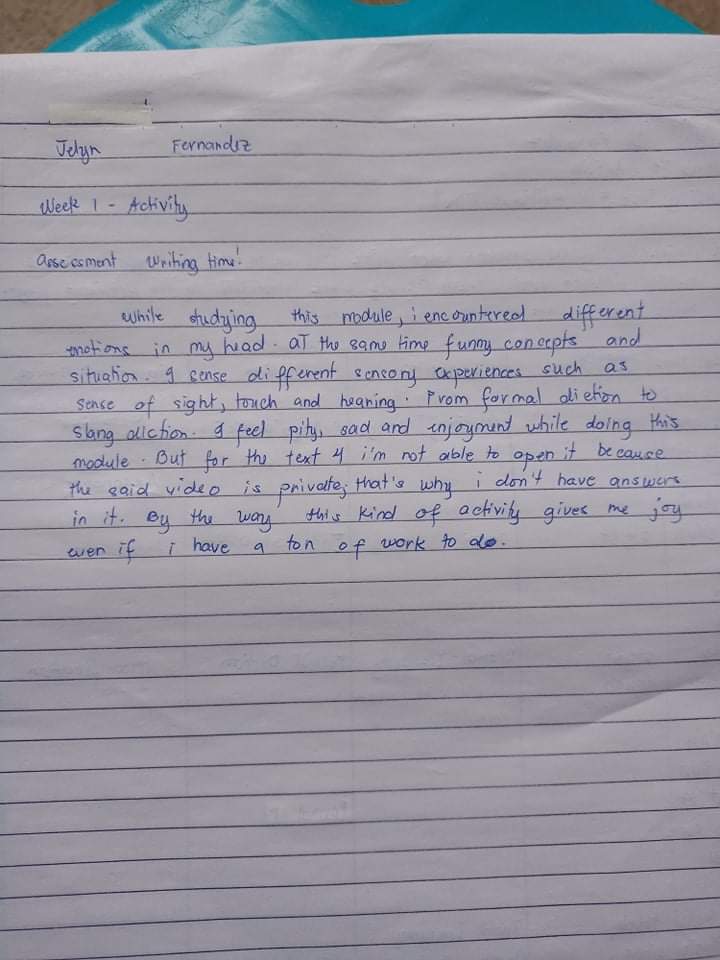 Jelyn Fernandez
Week 1 - Activity
Assessment Writing time!
While studying this module, i encountered different
emotions in my head. aT the same time funny concepts and
situation. I sense different sensory experiences such as
sense of sight, touch and hearing. From formal diction to
slang diction. I feel pity, sad and enjoyment while doing this
module. But for the text 4 i'm not able to open it because
the said video is private; that's why i don't have answers
in it. By the way this kind of activity gives me joy
even if i have a ton of work to do.